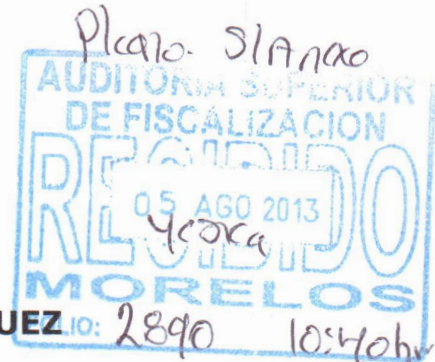 S/Anexo
AUDITORIA SUPERIOR
DE FISCALIZACION
RECIBIDO
05 AGO 2013
MORELOS
UEZ
LIO: 2890 10:40hr